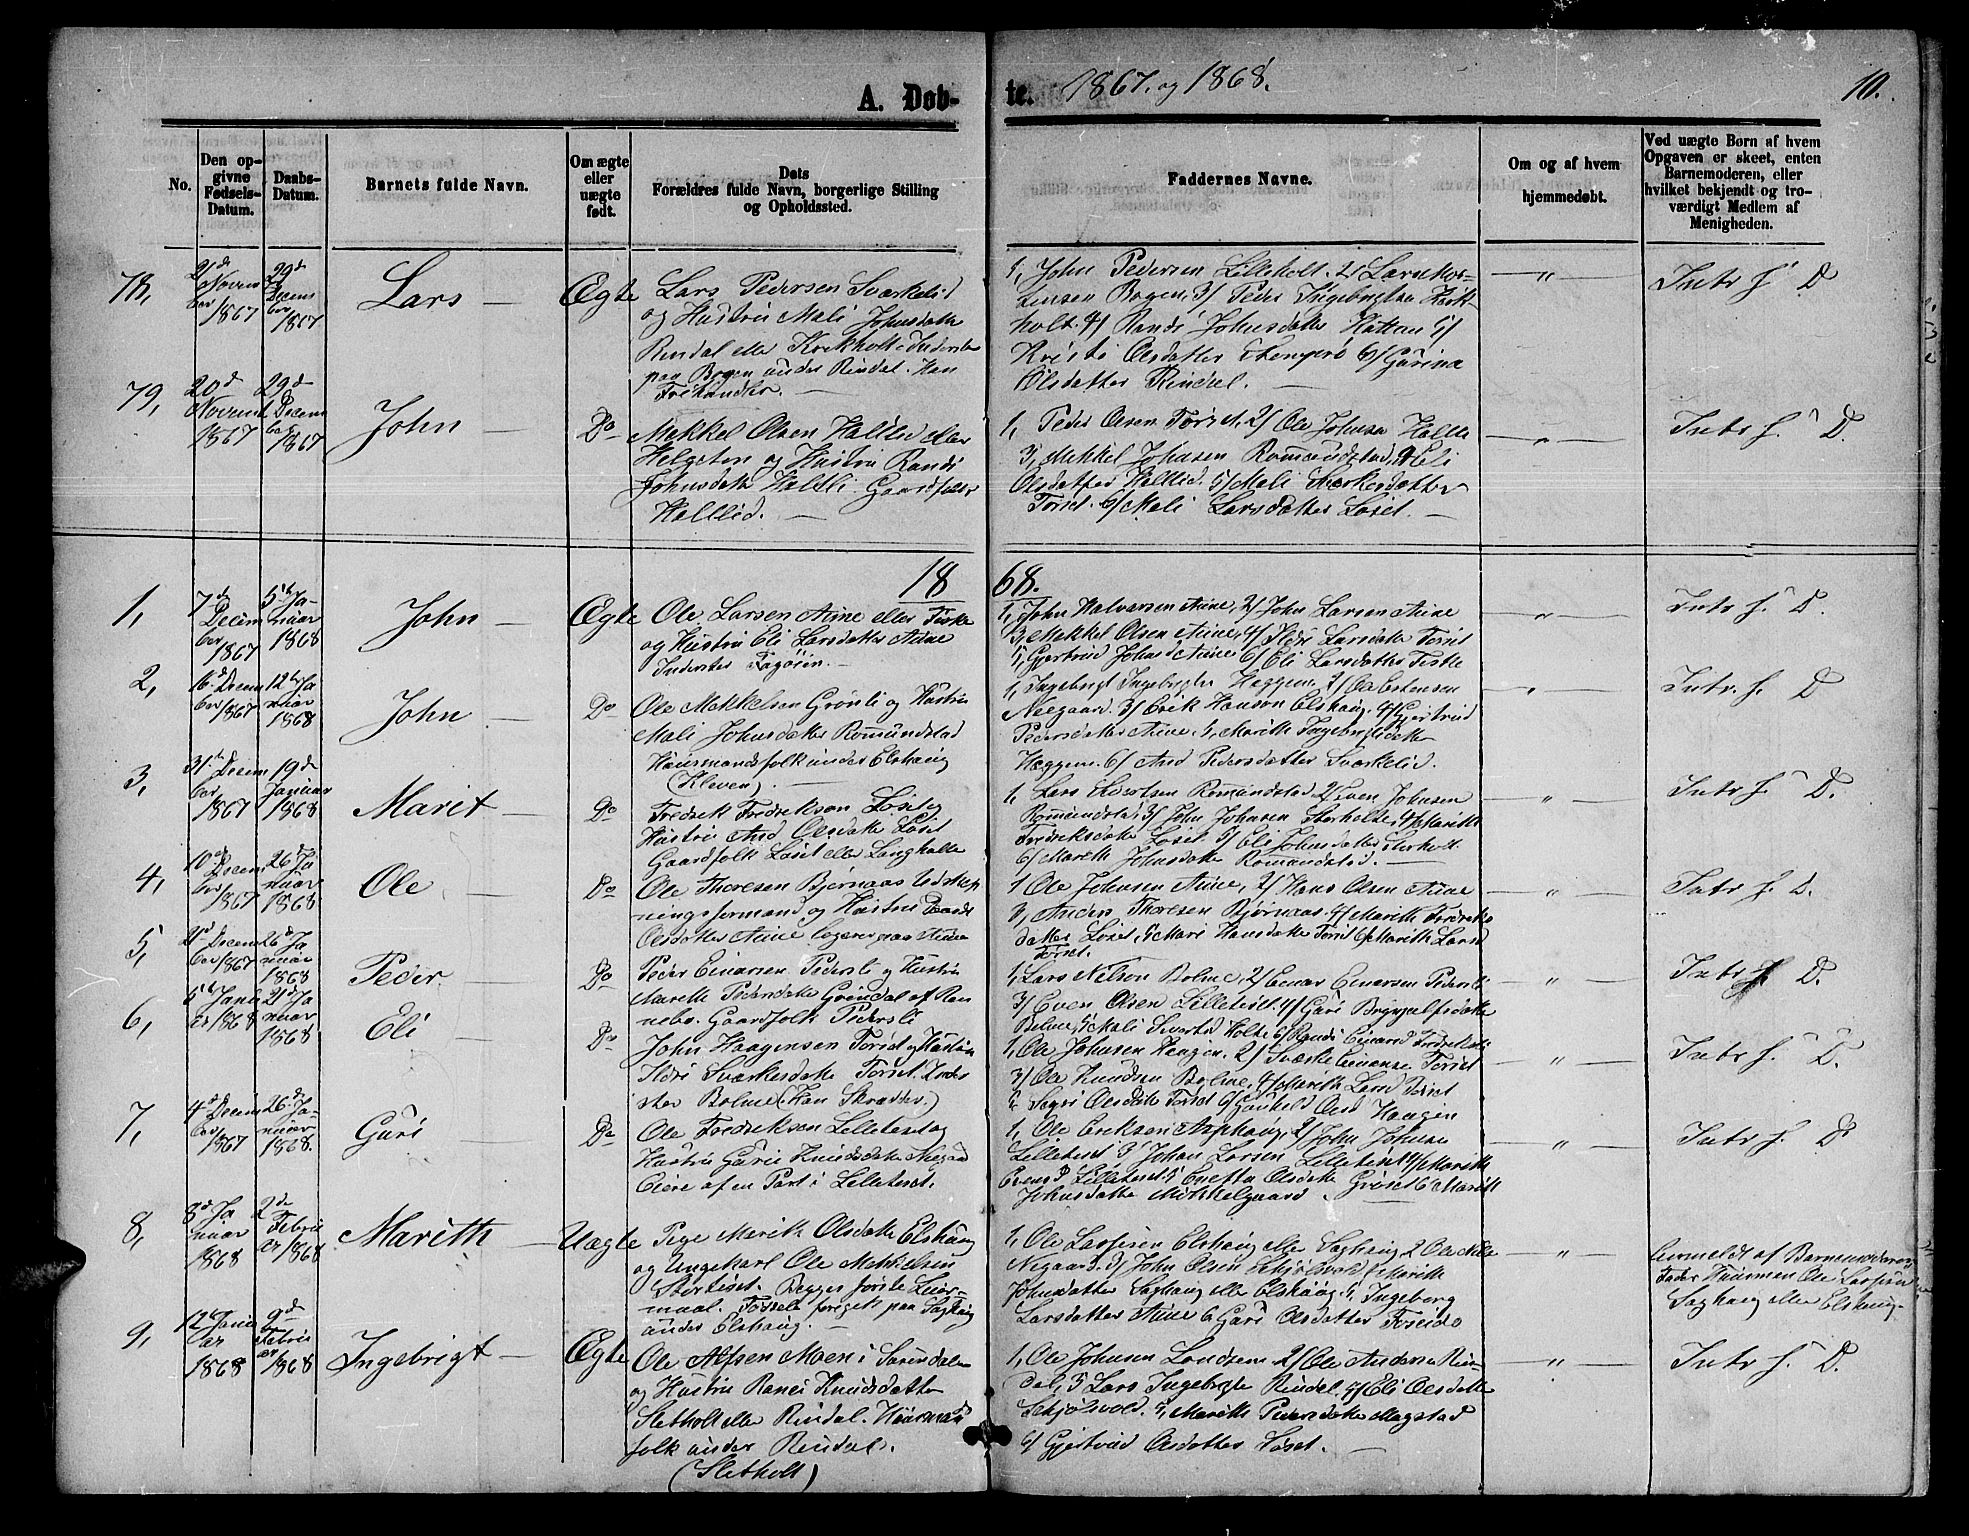 A. Døb-
te. 1867. og 1868.
10.
No.
Den op-
givne
Fødsels-
Datum.
Daabs-
Datum.
Barnets fulde Navn.
Om ægte
eller
uægte
født.
Dets
Forældres fulde Navn, borgerlige Stilling
og Opholdssted.
Faddernes Navne.
Om og af hvem
hjemmedøbt.
Ved uægte Børn af hvem
Opgaven er skeet, enten
Barnemoderen, eller
hvilket bekjendt og tro-
værdigt Medlem af
Menigheden.
78,
Novem
ber
1867
29d
Decem
ber
1867
Lars
Ægte
Lars Pedersen Sværkelid
og Hustru Mali Johnsdatte
Rindal eller Kirkholt Inderster
paa Bogen under Rindal. Han
Frihandler.
1, John Pedersen Lilleholt. 2/ Lars
Bogen, 3/ Peder Ingebrigtsen Kirk
holt. 4/ Randi Johnsdatter Hattan 5/
Kristi Olsdatter Stengerø 6/ Gurina
Olsdatter Rindal.
"
Intr. h. D
79,
20d
Novemb
1867
29d
Decem
ber
1867
John
Do
Mekkel Olsen Hallid eller
Helgeten og Hustru Randi
Johnsdatte Halli. Gaardfolk
Hallid.
1, Peder Olsen Torset, 2/ Ole Johnsen Halle
3, Mekkel Johnsen Romundstad, 4 Eli
Olsdatter Hallid. 5/ Mali Sværkesdatter
Torset. 6/ Mali Larsdatter Løset.
"
Intr. h. D.
18
68.
1,
7d
Decem
ber
1867
5t Ja-
nuar
1868
John
Ægte
Ole Larsen Aune eller Fiske
og Hustru Eli Larsdatter Aune
Inderster
1, John Halvorsen Aune, 2/ John Larsen Aune
3, Mekkel Olsen Aune, 4/ Ildri Larsdatte Torset
5, Gjertrud Johnsd Aune 6/ Eli Larsdatter Fiske
"
Intr. h. D.
2,
16d Decem
ber
1867
12t Ja
nuar
1868
John
Do
Ole Mekkelsen Grønli og Hustru
Mali Johnsdatter Romundstad
Huusmandsfolk under Elshaug
(Kleven)
1, Ingebrigt Ingebrigtsen Heggem, 2/ Ole Estensen
Negaard. 3/ Erik Hanson Elshaug. 4/ Gjertrud
Pedersdatter Aune, 5, Marith Ingebrigtsdatte
Heggem. 6/ And Pedersdatter Sværkelid.
"
Intr. h. D
3,
31t Decem
ber
1867
19d
Januar
1868
Marit
Do
Fredrik Fredriksen Løset og
Hustru And Olsdatte Løset
Gaardfolk Løset eller Langhalle
1, Lars Romundstad 2/ Even Johnsen
Romundstad, 3/ John Johnsen Storholt, 4/ Marith
Fredriksdatte Løset. 5/ Eli Johnsdatter Storholt
6/ Marith Johnsdatte Romundstad.
"
Intr. h. D.
4,
10d Decem
ber
1867
26d Ja
nuar
1868
Ole
Do
Ole Thoresen Bjørnaas Udskep
ningsformand og Hustru Randi
Olsdatter Aune logerer paa Aune
1, Ole Johnsen Aune, 2/ Hans Olsen Aune
3, Anders Thoresen Bjørnaas. 4/ Marith Fredriks
datter Løset, 5, Mari Hansdatte Torset 6/ Marith Larsd
Torset.
"
Intr. h. D.
5,
21d Decem
ber
1867
26d Ja
nuar
1868
Peder
Do
Peder Einarsen Pedersli og Hustru
Marith Pedersdatte Grøndal af Ren
nebo. Gaardfolk Pedersli
1, Lars Nelson Bolme, 2/ Einar Einarsen Pedersli
3/ Even Olsen Lilleteset. 4/ Guri Brynjulfsdatte
Bolme, 5, Mali Sivertsd Holte 6/ Randi Einarsd Pedersli
"
Intr. h. D.
6,
5t Janu
ar 1868
21d Ja
nuar
1868
Eli
Do
John Haagensen Torset og Hustru
Ildri Sværkesdatte Torset. Inder
ster Bolme (Han Skrædder.)
1, Ole Johnsen Haugen, 2/ Sværke Einarsen Torset
3/ Ole Knudsen Bolme, 4/ Marith Larsd Torset
5 Segri Olsdatte Torset 6/ Olsd Haugen
"
Intr. h. D.
7,
4d Decem
ber
1867
26d Ja-
nuar
1868.
Guri
Do
Ole Fredriksen Lilleteset og
Hustru Guru Knudsdatte Negard
Eiere af en Part i Lilleteset.
1, Ole Eriksen Asphaug, 2/ John Johnsen
Lilleteset 3/ Johan Larsen Lilleteset 4/ Marith
Evensd Lilleteset. 5 Olsdatte Grøset 6 Marith
Johnsdatte Mikkelgaard
"
Intr. h. D.
8,
8d Ja
nuar
1868
2d
Febru
ar 1868
Marith
Uægte
Pige Marith Olsdatte Elshaug
og Ungekarl Ole Mekkelsen
Storteset. Begges første Leier-
maal. Fødsele foregik paa Saghaug
under Elshaug.
1, Ole Lassesen Elshaug eller Saghaug 2 Ole
Negaard. 3/ John Olsen Skjølsvold 4/ Marith
Johnsdatter Saghaug eller Elshaug. 5, Ingeborg
Larsdatter Aune 6 Guri Olsdatter Foseide
"
Anmeldt af Barnemoderens
Fader Huusmand Ole Lassesen
Saghaug eller Elshaug.
9,
12t Janu
ar
1868
9d
Febru
ar
1868
Ingebrigt
Ægte
Ole Alfsen Moen i Surendalen
og Hustru Ranei Knudsdatter
Sletholt eller Rindal. Huusmands
folk under Rindal.
(Sletholt)
1, Ole Johnsen Landsem. 2/ Ole Andersen Rin-
dal, 3 Lars Ingebrigtsen Rindal, 4/ Eli Olsdatte
Skjølsvold. 5, Marith Pedersdatte Magstad
6/ Gjertrud Olsdatter Løset.
"
Intr. h. D.